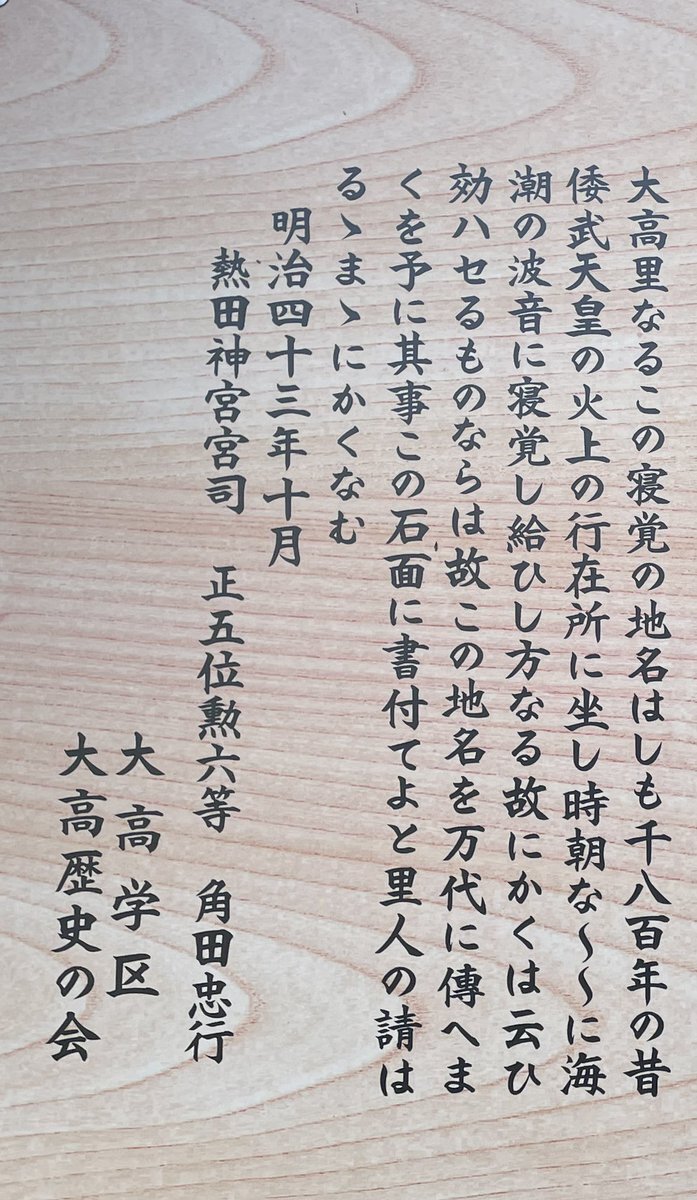 大高里なるこの寝覚の地名はしも千八百年の昔
倭武天皇の火上の行在所に坐し時朝な〱〱に海
潮の波音に寝覚し給ひし方なる故にかくは云ひ
効ハセるものならは故この地名を万代に傳へま
くを予に其事この石面に書付てよと里人の請は
るゝまゝにかくなむ
明治四十三年十月
熱田神宮宮司 正五位勲六等 角田忠行
大高学区
大高歴史の会